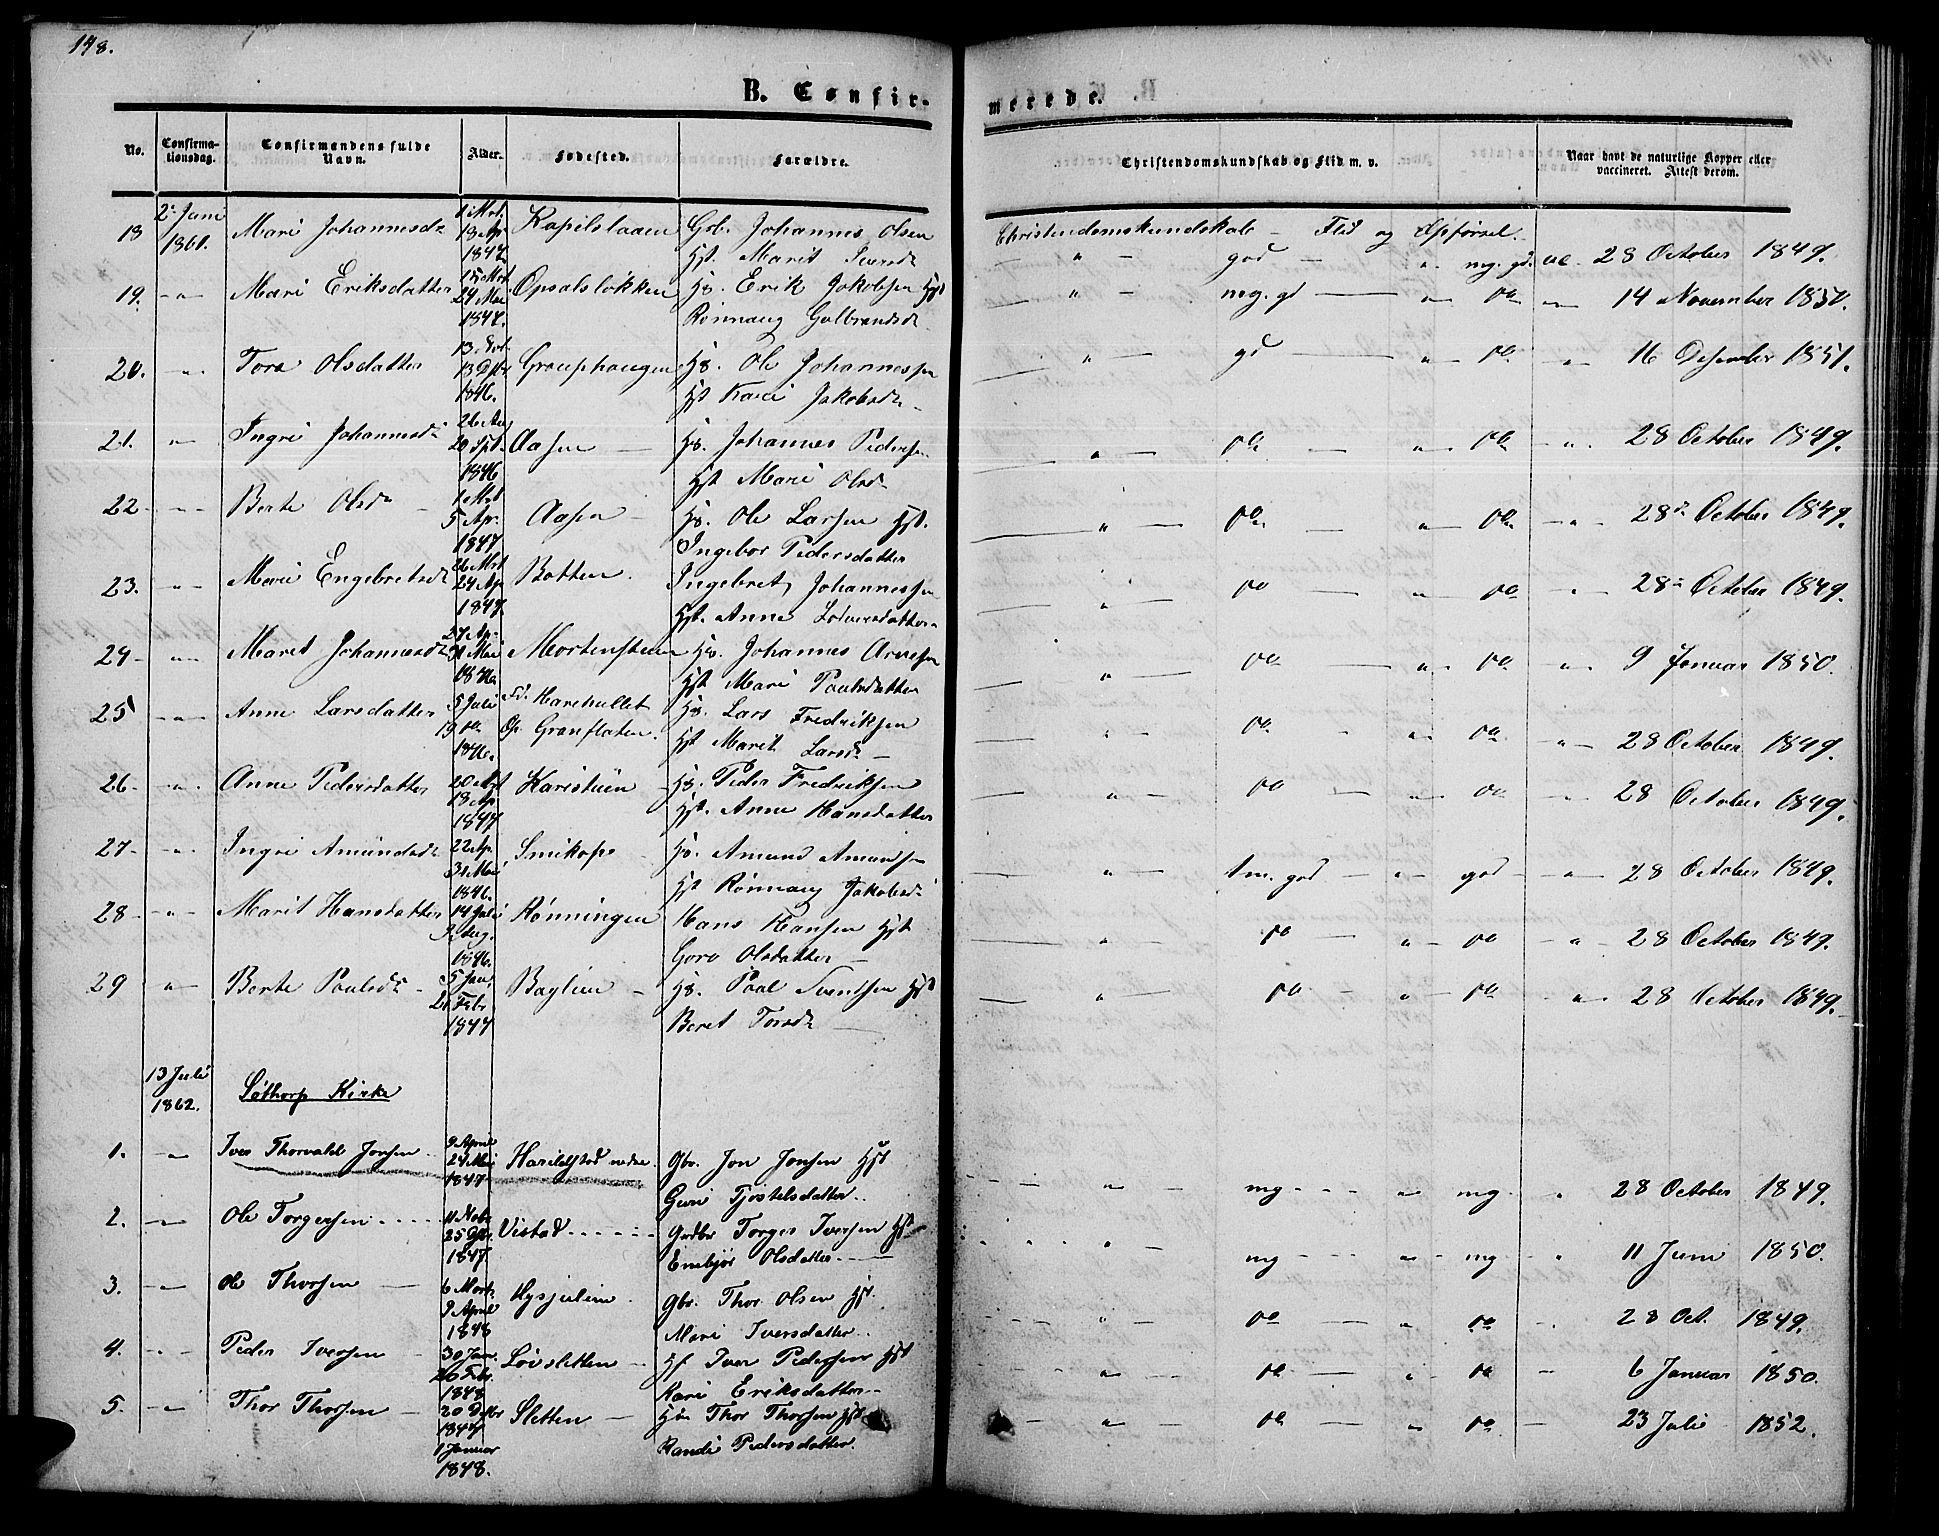 148.
B. Confir-
merede.
No.
Confirma-
tionsdag.
Confirmandens fulde
Navn.
Alder.
Fødested.
Forældre.
Christendomskundskab og Flid m. v.
Naar havt de naturlige Kopper eller
vaccineret. Attest derom.
18 2 Juni 1861. Mari Johannesdr 1 Mrt. 18 Apr 1847 Gbr. Johannes Olsen
Hst. Marit Iversdr
Christendomskundskab – Flid og Opførsel.
" – god – " mg. gd. 28 October 1849.
19. – " – Mari Eriksdatter 15 Mrt 24 Mai 1847. Opsalsløkken Hs. Erik Jakobsen Hst
Rønnaug Gulbrandsdr
" – mg. gd – " – do 14 November 1850.
20. – " – Tore Olsdatter 13 Dbr 1846. Grouphaugen Hs. Ole Johannessen
Hst Kari Jakobsdr
" – gd – " – do " 16 Desember 1851.
21. – " – Ingri Johannesdr 20 Spt. 1846 Aasen – Hs. Johannes Pedersen
Hst Mari Olsdr
" – do – " – do – " 28 October 1849.
22 – " – Berte Olsdr 1 Mrt 5 Apr. 1847 Aasen – Hs. Ole Larsen Hst.
Ingebor Pedersdatter
" – do – " – do – " – 28 October 1849.
23. – " – Mari Engebretsdr 26 Mrt 24 Apr 1847. Botten. Ingebret Johannessen
Hst. Anne
" – do – " – do – " 28 October 1849.
24 – " – Maret Johannesdr 27 Ap. 31 Mai 1846. Mortenstuen Hs. Johannes Arnesen
Hst Mari Paulsdatter
" – do – " – do – " 9 Januar 1850.
25 – " – Anne Larsdatter 5 Juli 19 do 1846. Fd. Harehullet
Op. Granflaten. Hs. Lars Fredriksen
Hst Marit Larsdr –
" – do – " – do – " – 28 October 1849.
26 – " – Anne Pedersdatter 20 Mrt 18 Ap. 1847 Karistuen Hs. Peder Fredriksen
Hst. Anne Hansdatter
" – do – " – do – " 28 October 1849.
27 – " – Ingri Amundsdr 22 Ap. 31 Mai 1846. Hs. Amund Amundsen
Hst Rønnaug Jakobsdr
" – tm. god – " – god – " – 28 October 1849.
28 – " – Marit Hansdatter 14 Juli 1846. Rønningen Hans Hansen Hst
Goro Olsdatter –
" – do – " – do – " – 28 October 1849.
29 " – Berte Paulsdr 5 Jan. 21 Febr 1847 Baglien – Hs. Paal Svendsen Hst
Beret Torsdr –
" – do – " – do – " – 28 October 1849.
13 Juli 1862. Søthorp Kirke
1. – " Iver Thorvald Jonsen 9 April 24 Mai 1847 Harildstad nedre. Gbr. Jon Jonsen Hst
Guri Tjostelsdatter
" – mg – " – mg – " 28 October 1849.
2. – " – Ole Torgersen 11 Nobr 25 1847. Vistad Gadbr Torger Iversen Hst
Embjør Olsdatter
" – mg – " – mg – " 11 Juni 1850.
3. – " – Ole Thorsen – 6 Mart 9 April 1848 Hysjulien. Gbr. Thor Olsen Hst
Mari Iversdatter
" – do – " – do – 28 Oct. 1849.
4. – " – Peder Iversen – 30 Jan. 26 Febr. 1848 Løvsletten – Hs Iver Pedersen Hst
Kari Eriksdatter
" – do – " – do – 6 Januar 1850.
5. – " – Thor Thorsen – 20 Debr 1847 1 Januar 1848. Sletten – Thor Thorsen Hst
Randi Pedersdatter.
" – do – " – do – 23 Juli 1852.